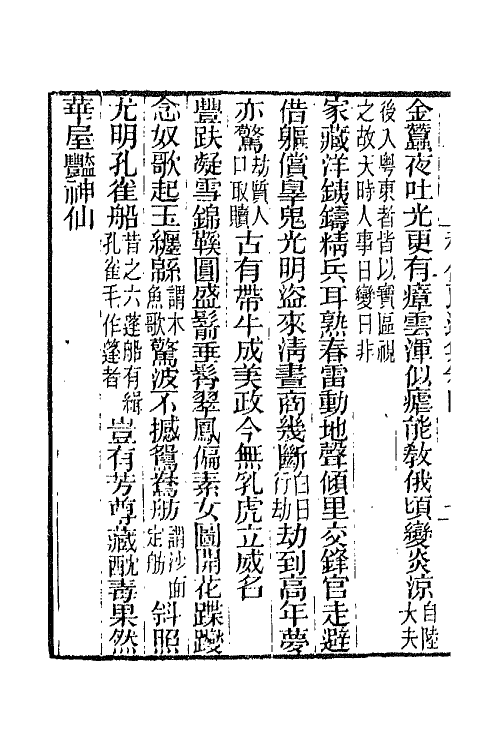 金蠶夜吐光更有瘴雲渾似瘧能教俄頃變炎涼自陸大夫
後入粵東者皆以寶區視之故天時人事日變日非
家藏洋銕鑄精兵耳熟春雷動地聲傾里交鋒官走避
借軀償辠鬼光明盜來淸晝商幾斷白日行劫劫到高年夢
亦驚劫質人口取贖古有帶牛成美政今無乳虎立威名
豐趺凝雪錦鞵圓盛鬋垂髾翠鳳偏素女圖開花蹀躞
念奴歌起玉纏緜謂木魚歌驚波不撼鴛鴦舫謂沙面定舫斜照
尤明孔雀船昔之六蓬船有緝孔雀毛作蓬者豈有芳尊藏酖毒果然
華屋豔神仙